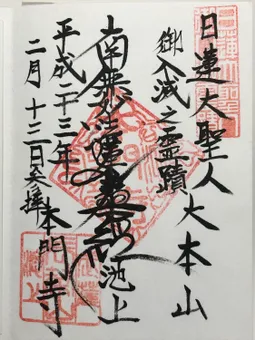 日蓮大聖人大本山
御入滅之霊蹟
南無妙法蓮華経
池上
平成二十三年
二月十三日参拝
本門寺